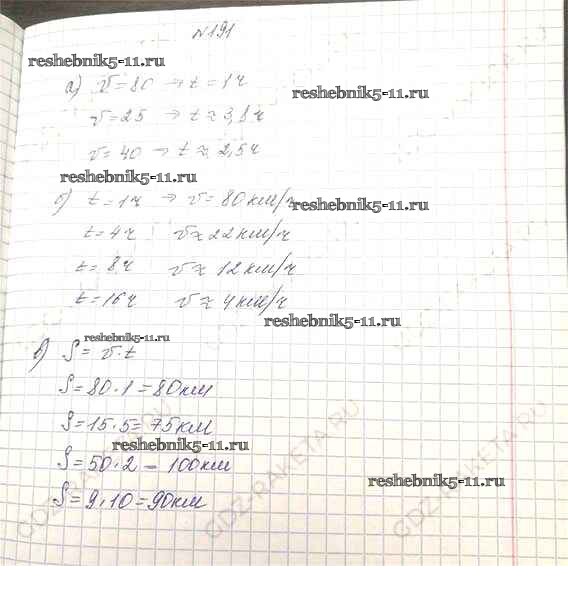 №191
reshebnik5-11.ru
а) v=80 → t=1ч
reshebnik5-11.ru
v=25 → t≈3,8ч
v=40 → t≈2,5ч
reshebnik5-11.ru
б) t=1ч → v=80км/ч
reshebnik5-11.ru
t=4ч v≈22км/ч
t=8ч v≈12км/ч
t=16ч v≈4км/ч
reshebnik5-11.ru
reshebnik5-11.ru
в) S=v·t
S=80·1=80км
S=15·5=75км
reshebnik5-11.ru
S=50·2=100км
reshebnik5-11.ru
S=9·10=90км
GDZ-RAKETA.RU
GDZ-RAKETA.RU